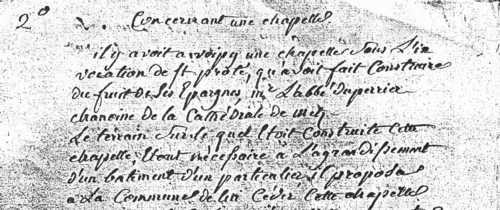 2° Concernant une chapelle
il y avoit a woipy une chapelle sous L'in
vocation de st prote, qu'avoit fait Construire
du fruit de ses Epargnes, mr L'abbé Duperrier
chanoine de la Cathédrale de metz.
Le terrain sur le quel Etoit construite cette
chapelle, Etant nécessaire à L'agrandissement
d'un batiment d'un particulier il proposa
a La Commune de lui Céder Cette chapelle